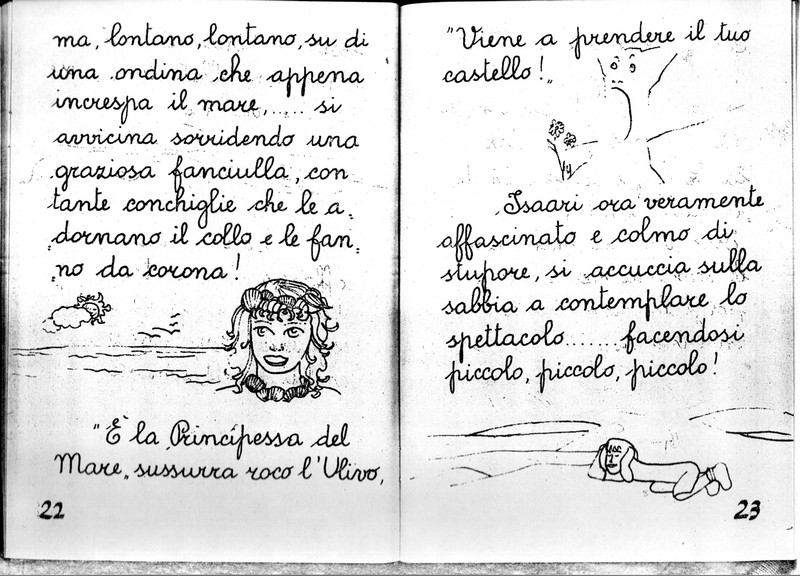 ma, lontano, lontano, su di
una ondina che appena
increspa il mare,..... si
avvicina sorridendo una
graziosa fanciulla, con
tante conchiglie che le a=
=dornano il collo e le fan=
=no da corona!
"È la Principessa del
Mare" sussurra roco l'Ulivo,
22
"Viene a prendere il tuo
castello!"
Isaari ora veramente
affascinato e colmo di
stupore, si accuccia sulla
sabbia a contemplare lo
spettacolo....... facendosi
piccolo, piccolo, piccolo!
23